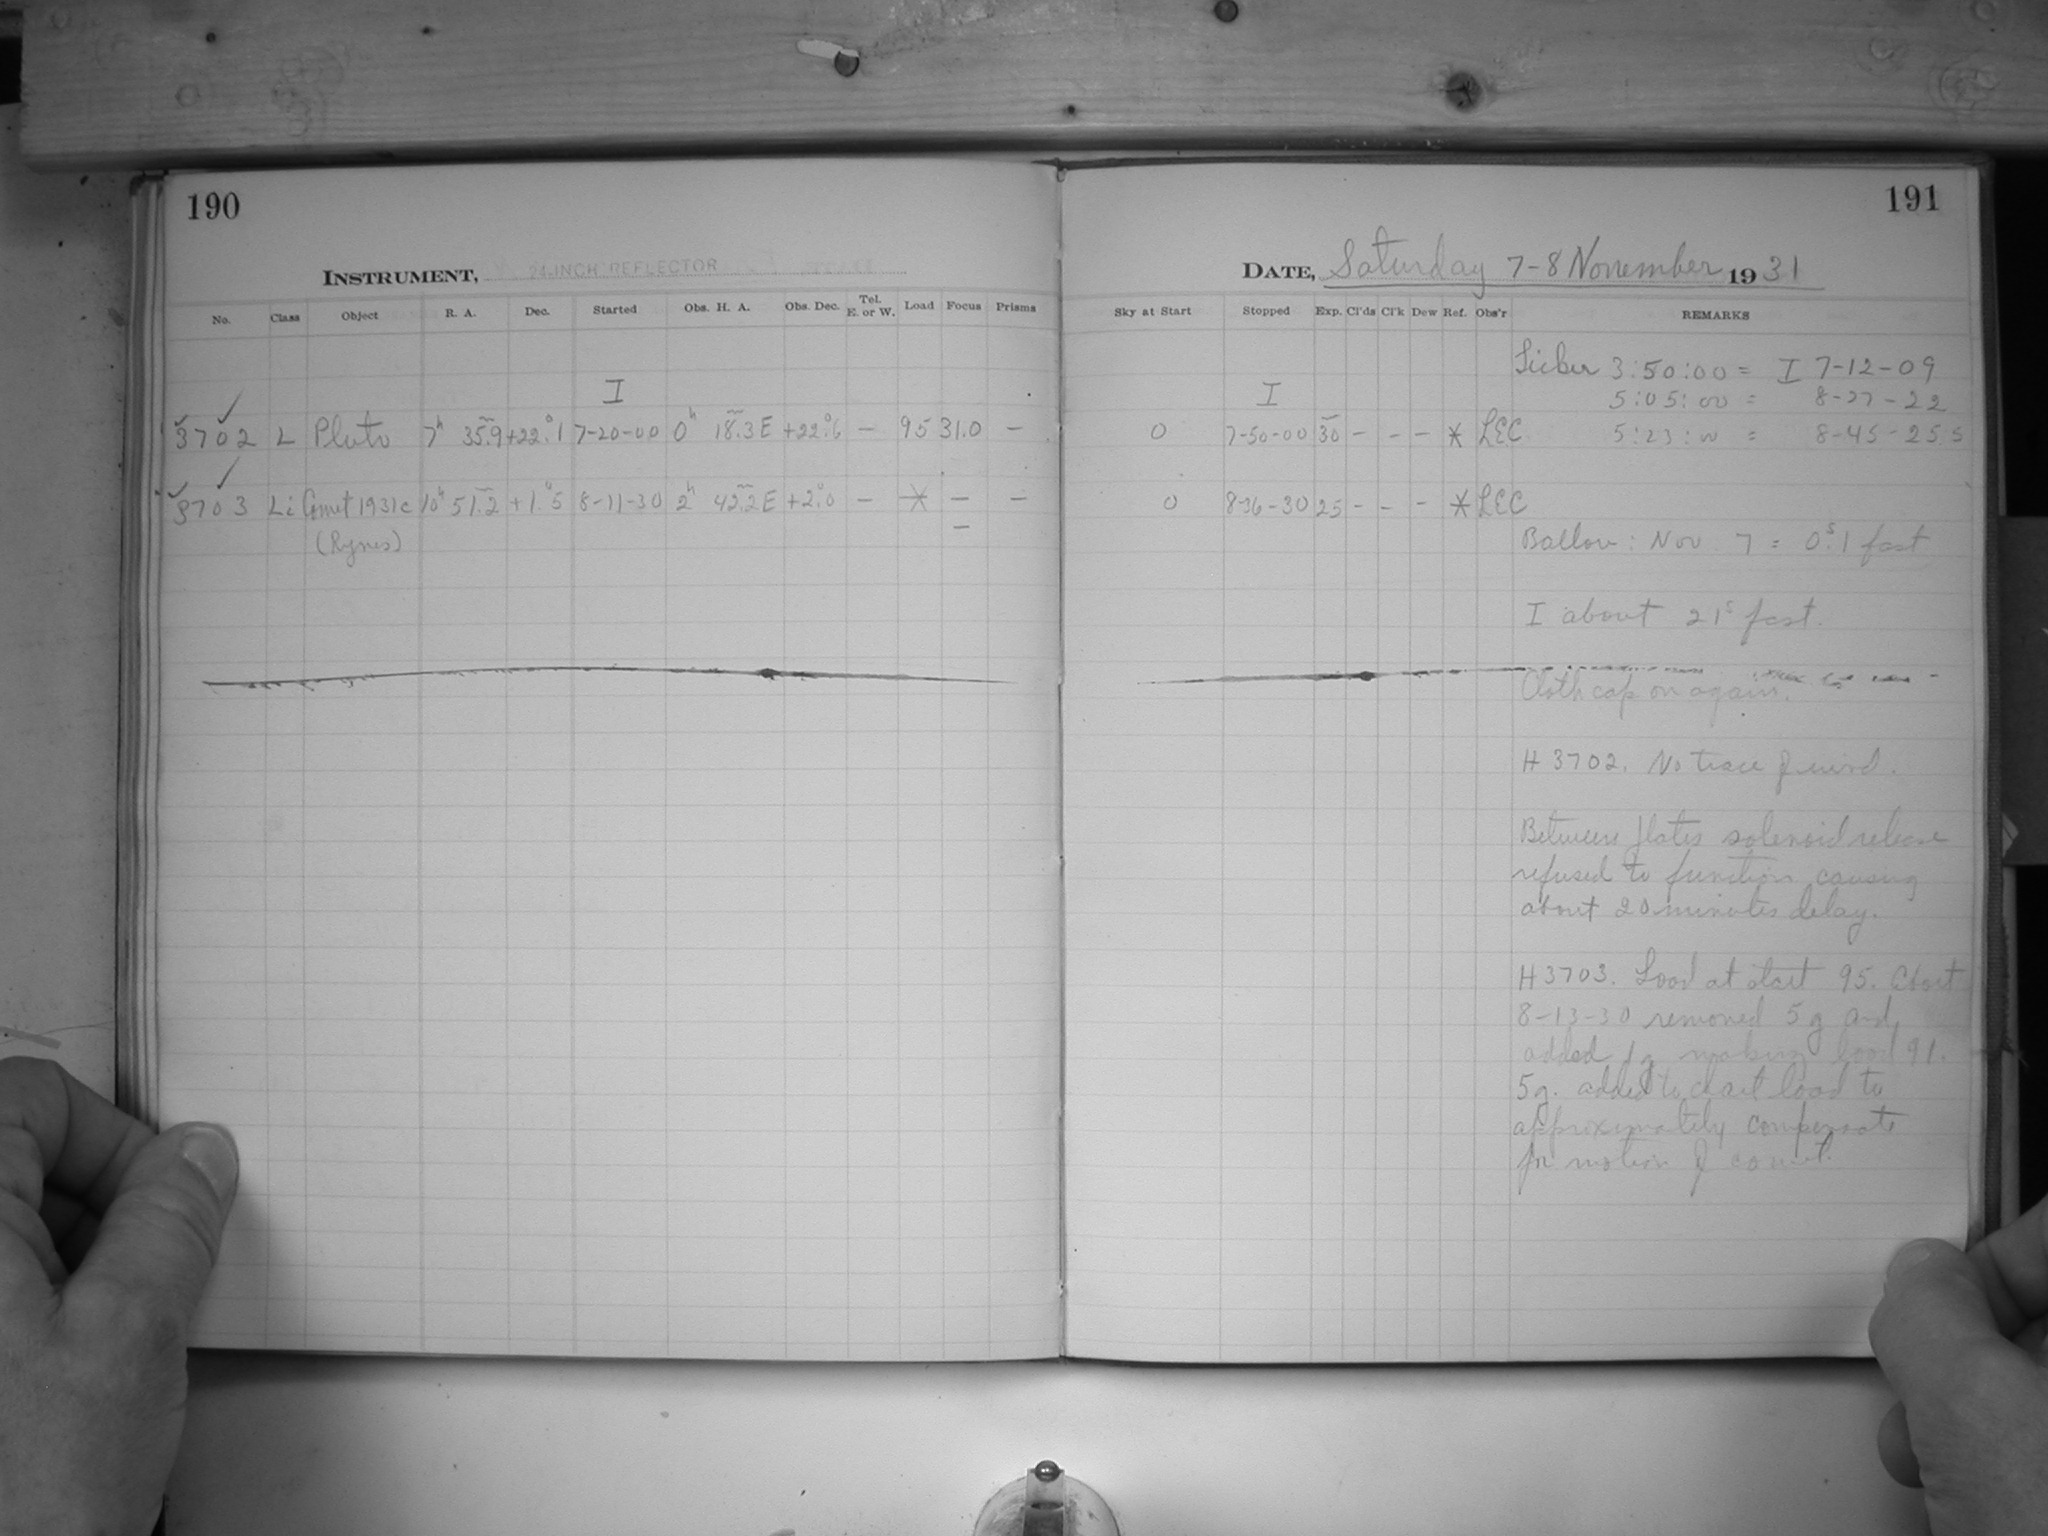 190
INSTRUMENT, 24-INCH REFLECTOR
No. Class Object R. A. Dec. Started Obs. H. A. Obs. Dec. Tel. E. or W. Load Focus Prisms
I
3702 L Pluto 7h 35m.9 +22°.1 7-20-00 0h 18m.3 E +22°.6 — 95 31.0 —
3703 Li Comet 1931c 10h 51m.2 +1°.5 8-11-30 2h 42m.2 E +2°.0 — * — —
(Rynes) —
191
DATE, Saturday 7-8 November 1931
Sky at Start Stopped Exp. Cl'ds Cl'k Dew Ref. Obs'r REMARKS
3:50:00 = I 7-12-09
I 5:05:00 = 8-27-22
0 7-50-00 30m - - - * LEC 5:23:00 = 8-45-25.5
0 8-36-30 25 - - - * LEC
Ballou: Nov 7 = 0s.1 fast
I about 21s fast.
Cloth cap on again.
H 3702. No trace of wind.
Between plates solenoid release
refused to function causing
about 20 minutes delay.
H 3703. Load at start 95. About
8-13-30 removed 5g and
added 1g making load 91.
5g. added to chart load to
approximately compensate
for motion of comet.